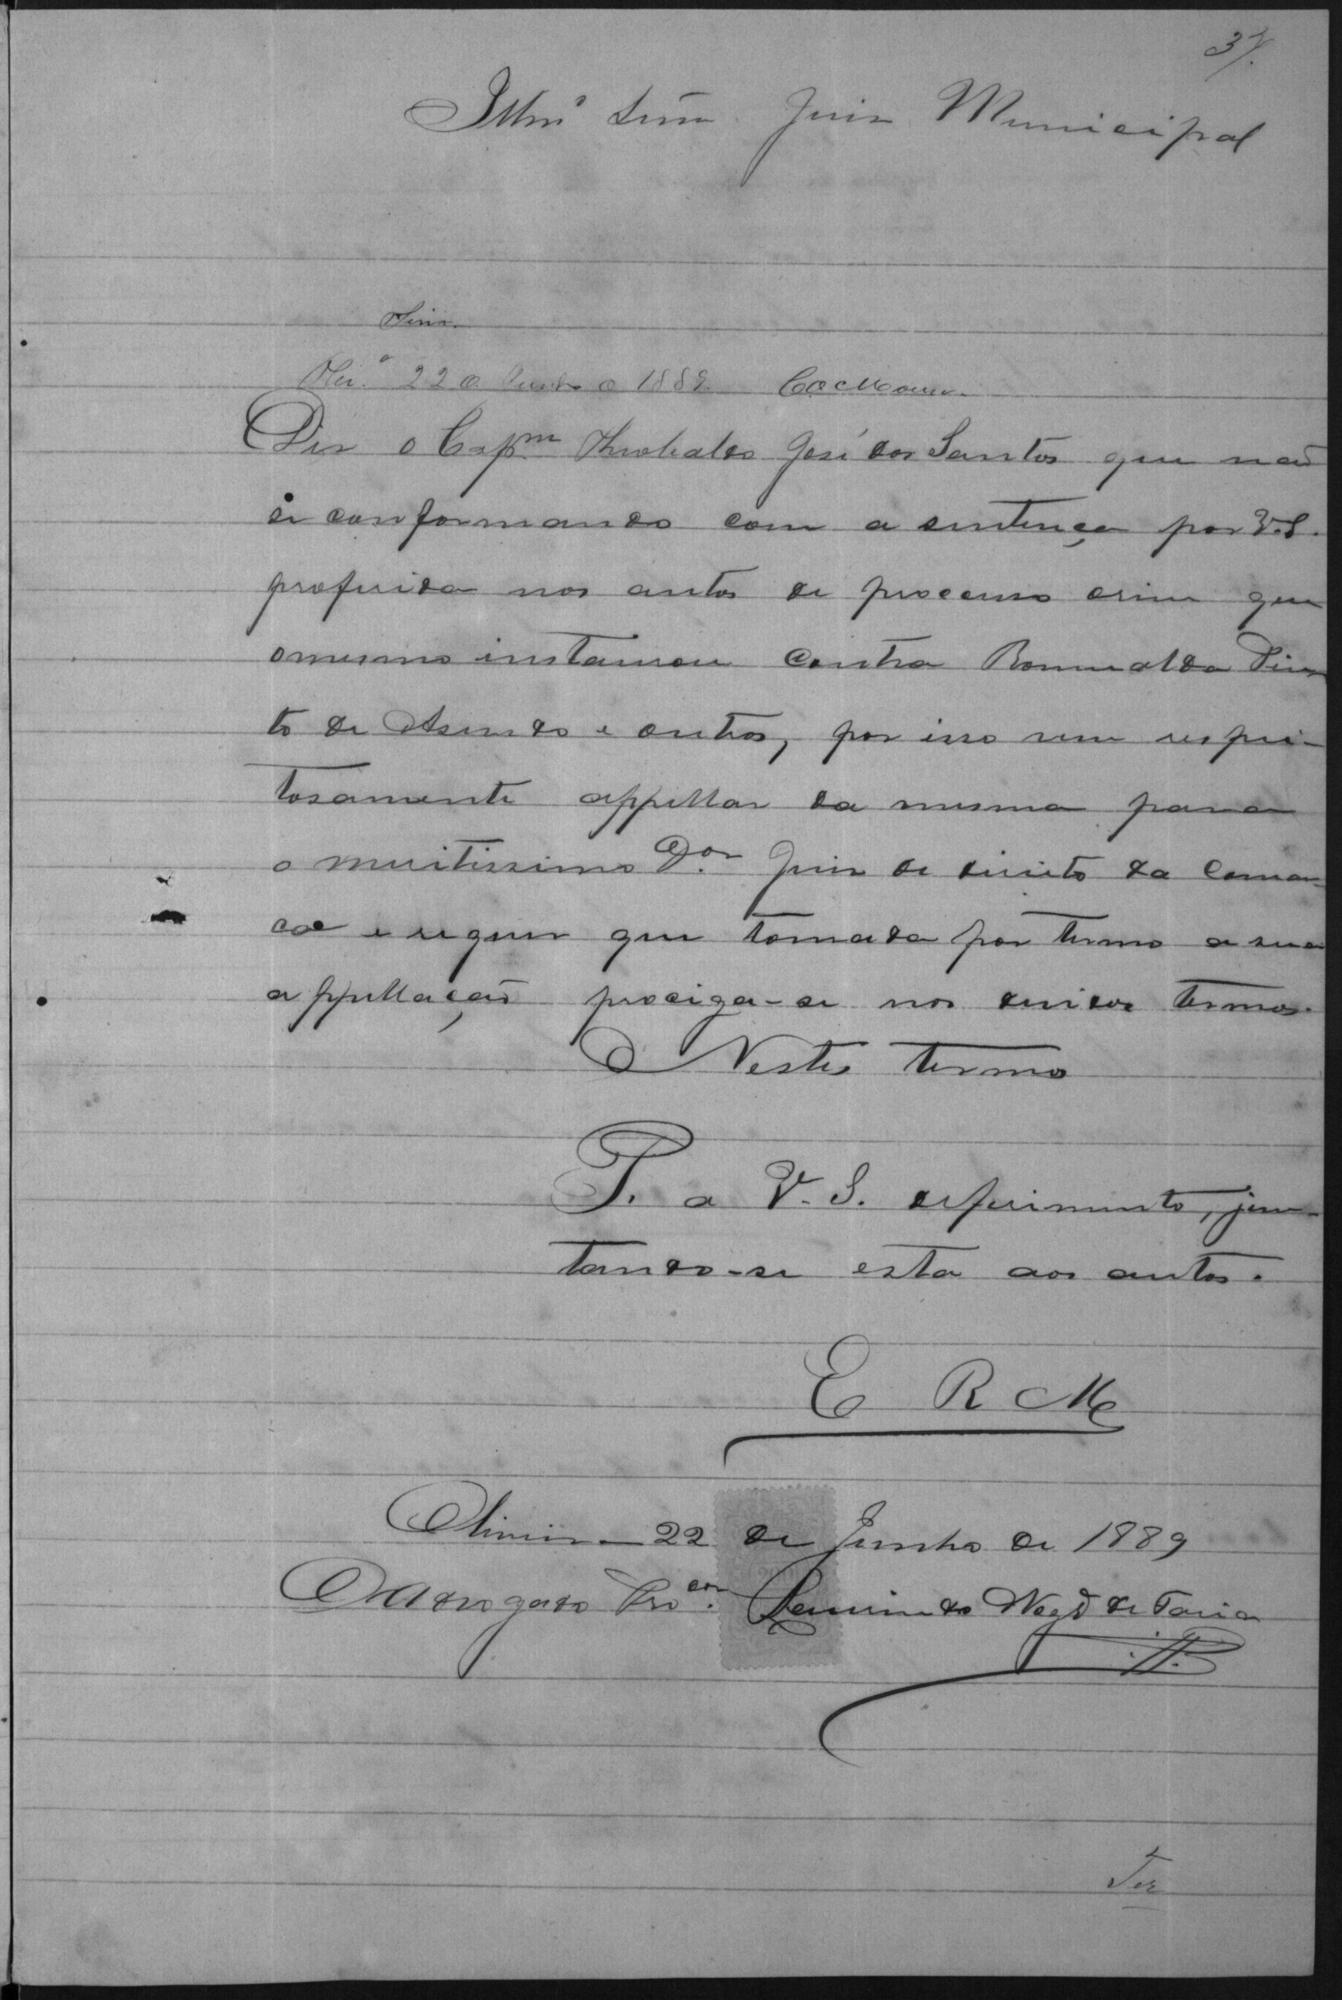 37.
Illm.º Snr. Juis Municipal
Sim.
22 de Junho de 1889.
Diz o Cap.m José dos Santos que não
se conformando com a sentença por V.S.
proferida nos autos de processo crime que
o mesmo instaurou contra Romualdo Pin-
to de Asevedo e outros, por isso vem respei-
tosamente appellar da mesma para
o meritissimo D.or Juis de direito da Comar-
ca e requer que tomada por termo a sua
appellação prociga-se nos devidos termos.
Nestes termos
P. a V. S. deferimento, jun-
tando-se esta aos autos.
E R M
22 de Junho de 1889
O Advogado Pro.dor de Faria
Ter